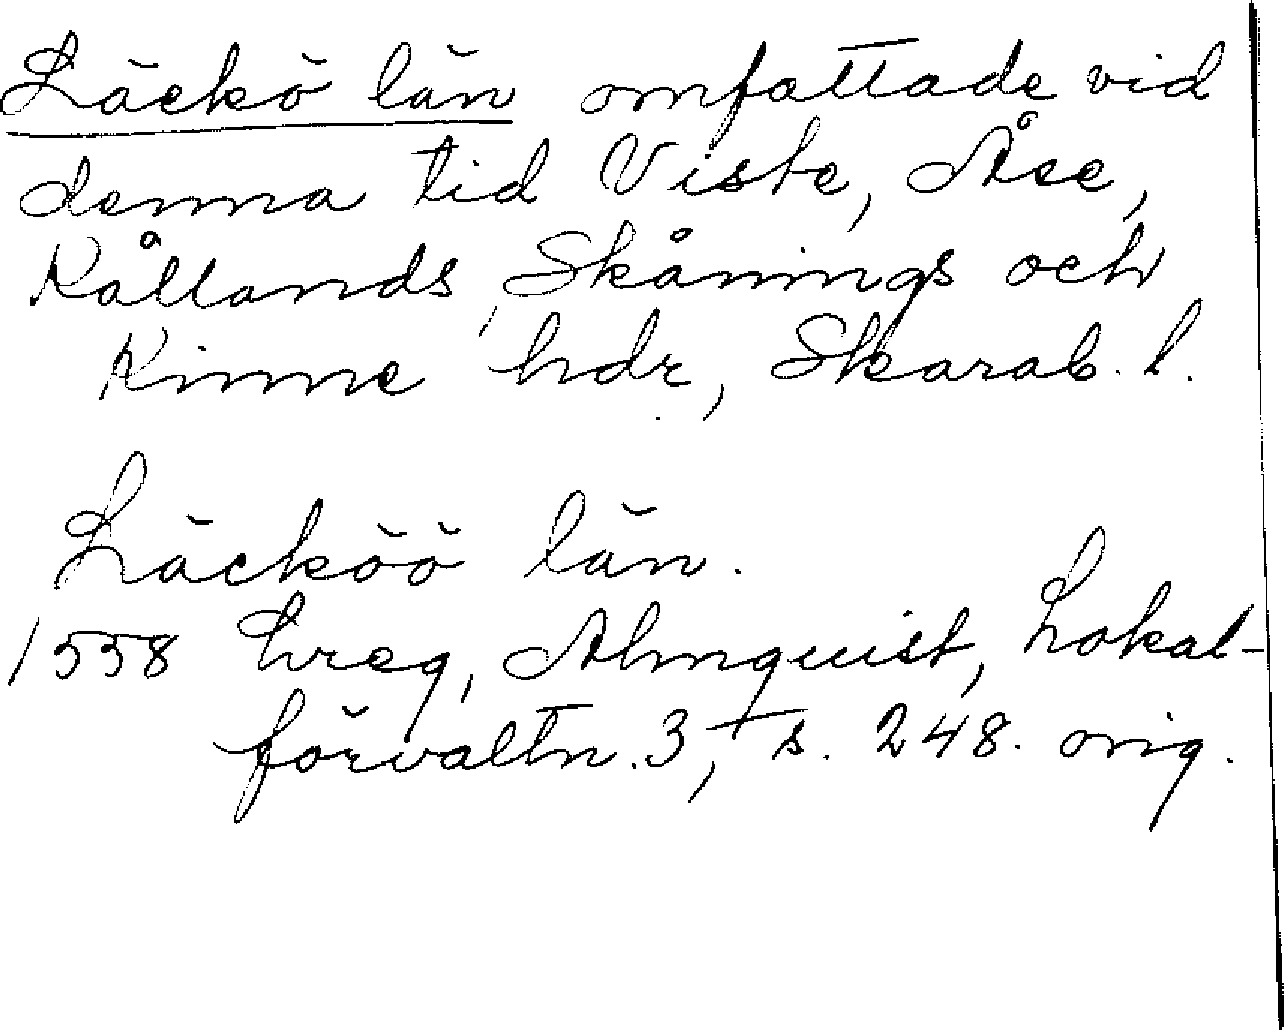 Läckö län omfattade vid
denna tid Viste, Åse,
Kållands, Skånings och
Kinne hdr, Skarab. l.
Läcköö län.
1558 hreg, Almquist, Lokal-
förvaltn. 3, s. 248. orig.